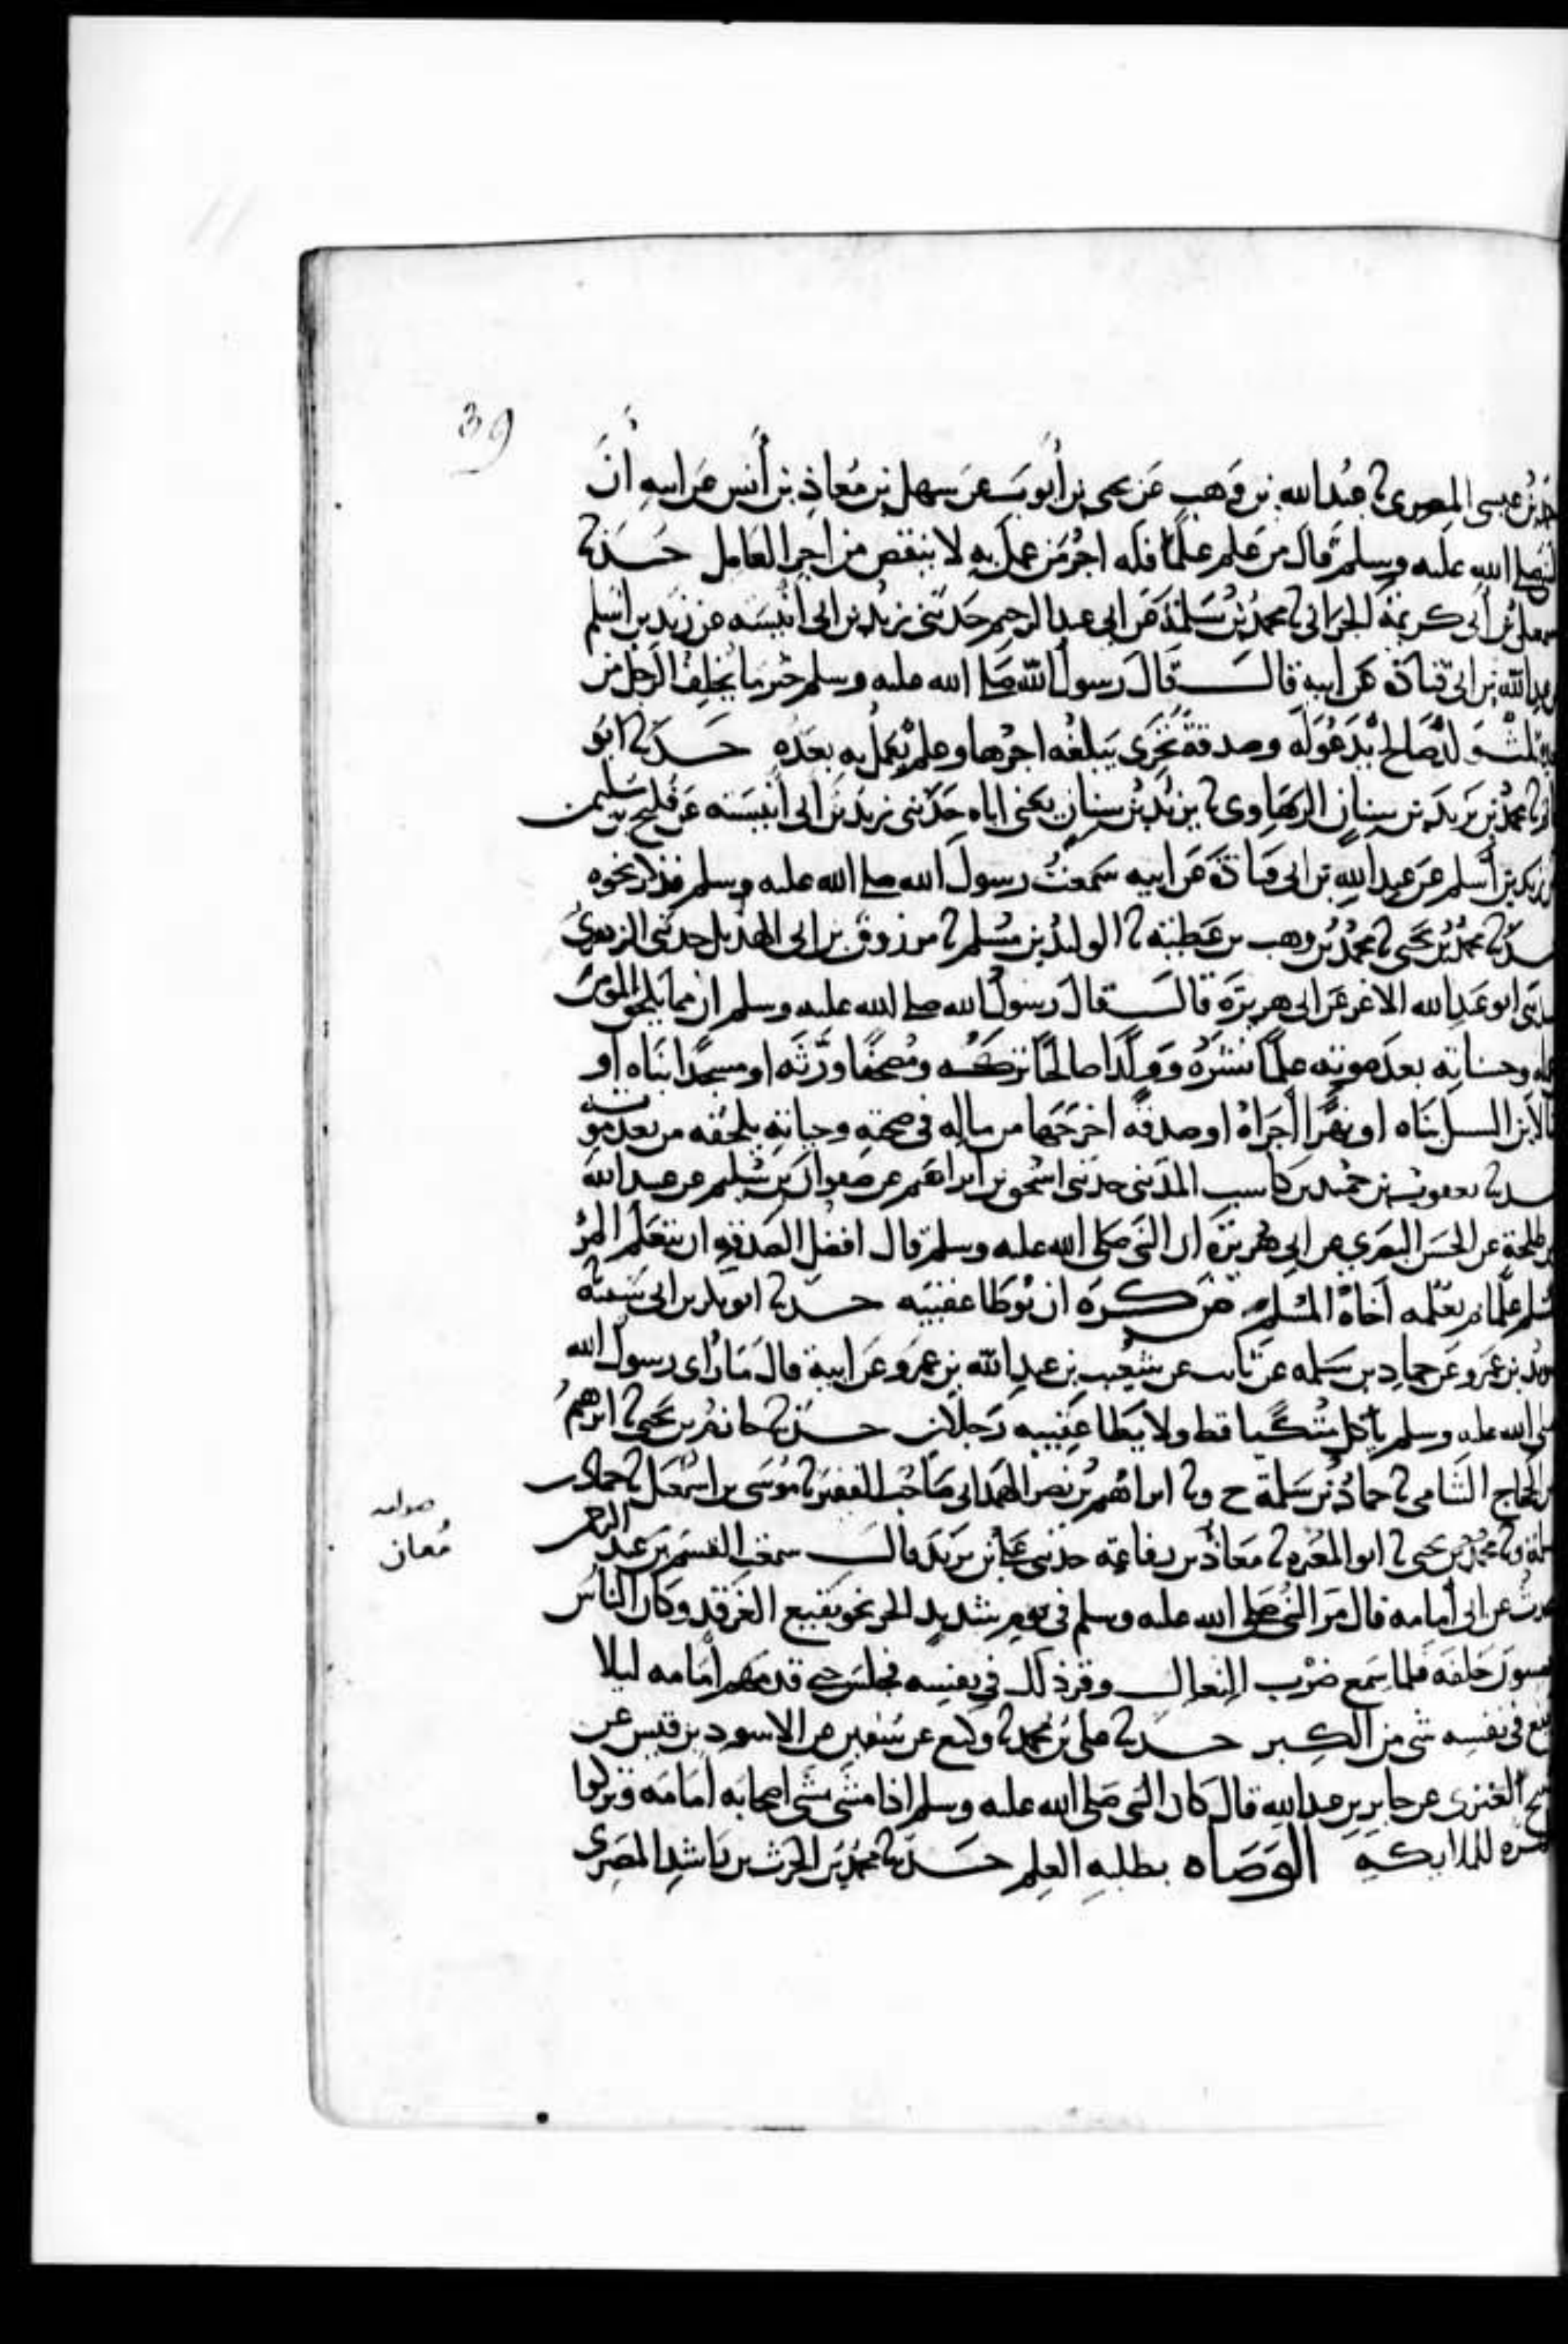 39
بن عيسى المصري نا عبد الله بن وهب عن يحيى بن أيوب عن سهل بن معاذ بن أنس عن ابيه أن
النبي صلى الله عليه وسلم قال من علم علما فله اجر من عمل به لا ينقص من اجر العامل حدثنا
بن أبي كريمة الحراني نا محمد بن سلمة عن ابي عبد الرحيم حدثني زيد بن ابي أنيسة عن زيد بن أسلم
عبد الله بن ابي قتادة عن ابيه قال قال رسول الله صلى الله عليه وسلم خير ما يخلف الرجل من
ولد صالح يدعو له وصدقة تجري يبلغه اجرها وعلم يعمل به بعده حدثنا ابو
نا محمد بن يزيد بن سنان الرهاوي نا يزيد بن سنان يعني اباه حدثني زيد بن ابي أنيسة عن فليح بن سليمن
زيد بن أسلم عن عبد الله بن ابي قتادة عن ابيه سمعت رسول الله صلى الله عليه وسلم فذكر نحوه
نا محمد بن يحيى نا محمد بن وهب بن عطية نا الوليد بن مسلم نا مرزوق بن ابي الهذيل حدثني الزهري
ابو عبد الله الاغر عن ابي هريرة قال قال رسول الله صلى الله عليه وسلم ان مما يلحق المومن
وحسناته بعد موته علما نشره وولدا صالحا تركه ومصحفا ورثه او مسجدا بناه او
لابن السبيل بناه او نهرا أجراه او صدقة اخرجها من ماله في صحته وحياته يلحقه من بعد موته
نا يعقوب بن حميد بن كاسب المدني حدثني اسحق بن ابراهيم عن صفوان بن سليم عن عبد الله
بن طلحة عن الحسن البصري عن ابي هريرة ان النبي صلى الله عليه وسلم قال افضل الصدقة ان يتعلم المرء
علما ثم يعلمه أخاه المسلم من كره ان توطا عقبيه حدثنا ابو بكر بن ابي شيبة
بن عمرو عن حماد بن سلمه عن ثابت عن شعيب بن عبد الله بن عمرو عن ابيه قال ما رأى رسول الله
صلى الله عليه وسلم ياكل متكيا قط ولا يطا عقبيه رجلان حدثنا حازم بن يحيى نا ابرهيم
بن الحجاج الشامي نا حماد بن سلمة ح ونا ابراهيم بن نصر الهمداني صاحب القفيز نا موسى بن اسمعيل نا حماد بن
ونا محمد بن يحيى نا ابو المغيره نا معاذ بن رفاعة حدثني علي بن يزيد قال سمعت القسم بن عبد الرحمن
يحدث عن ابي أمامه قال مر النبي صلى الله عليه وسلم في يوم شديد الحر نحو بقيع الغرقد وكان الناس
يمشون خلفه فلما سمع صوت النعال وقر ذلك في نفسه فجلس حتى قدمهم أمامه ليلا
يقع في نفسه شي من الكبر حدثنا علي بن محمد نا وكيع عن سفين عن الاسود بن قيس عن
نبيح العنزي عن جابر بن عبد الله قال كان النبي صلى الله عليه وسلم اذا مشى مشى اصحابه أمامه وتركوا
ظهره للملايكه الوصاه بطلبه العلم حدثنا محمد بن الحرث بن راشد المصري
صوابه
معان